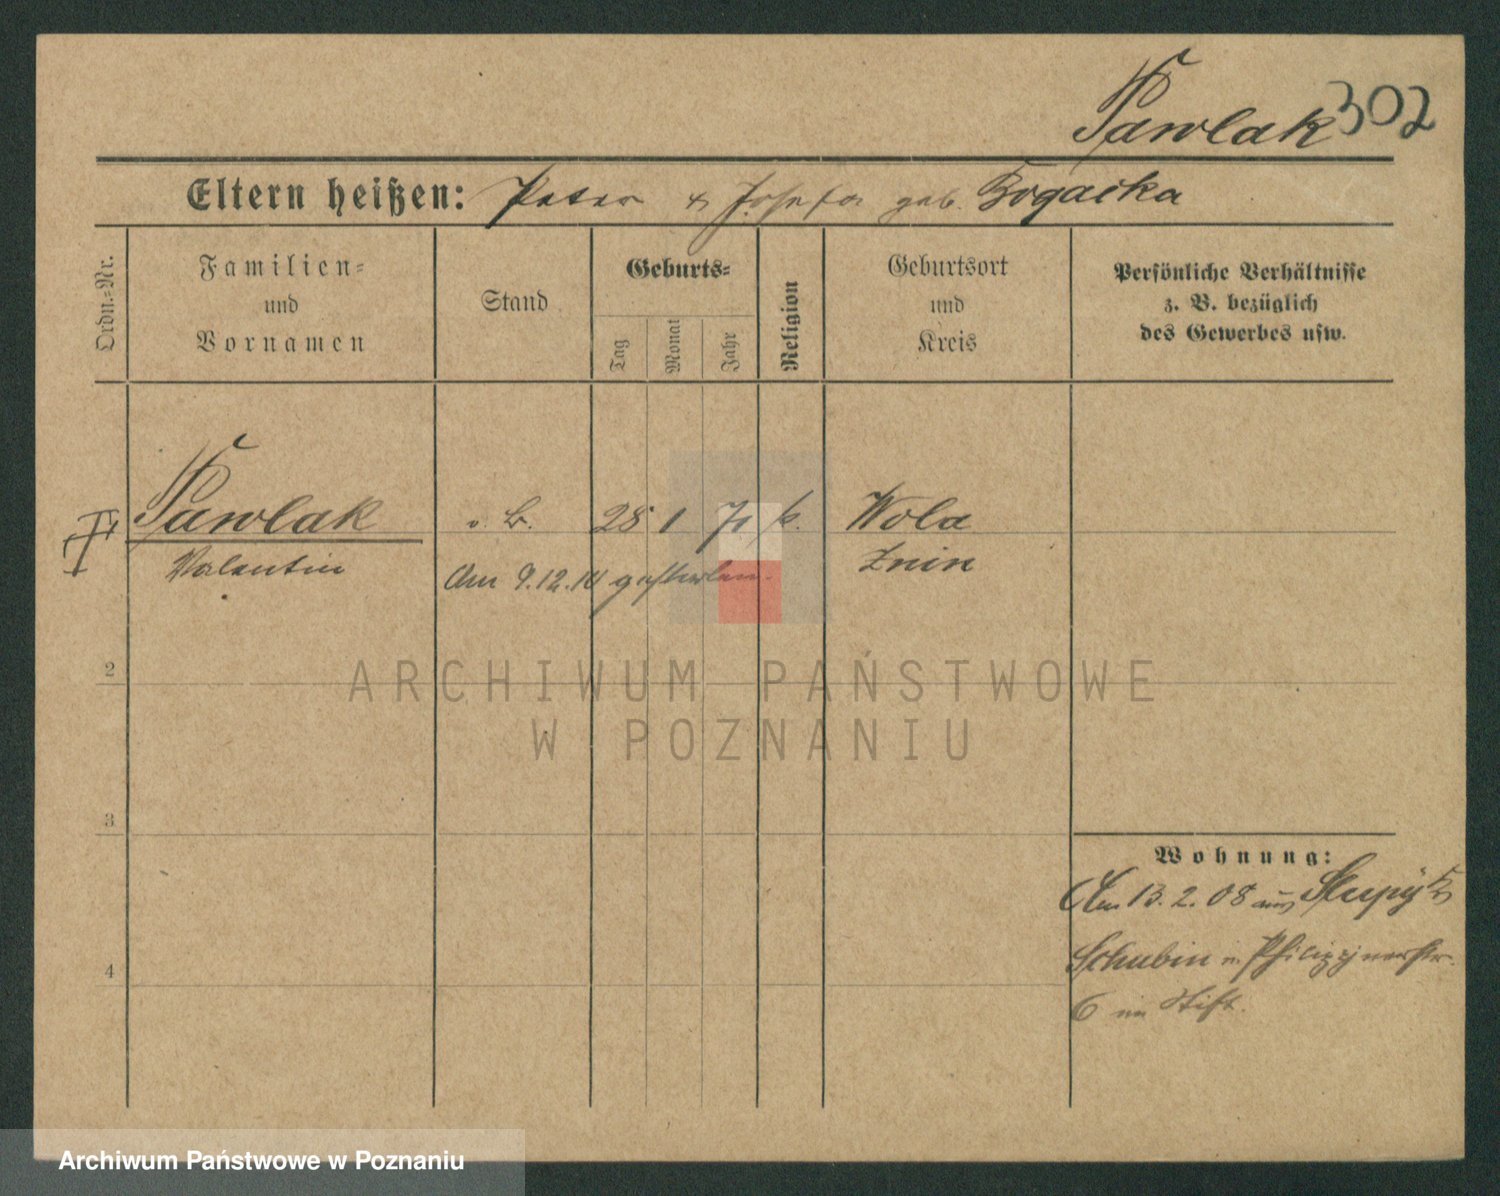 Pawlak 302
Eltern heißen: Peter & Josefa geb. Bogacka
Ordn.=Nr.
Familien=
und
Vornamen
Stand
Geburts=
Tag
Monat
Jahr
Religion
Geburtsort
und
Kreis
Persönliche Verhältnisse
z. B. bezüglich
des Gewerbes usw.
Pawlak o. B. 28 1 k. Wola
Valentin Am 9.12.14 gestorben. Znin
2
3
4
Wohnung:
Am 13.2.08 aus
Schubin n. Philippinenstr.
6 im Stift.
ARCHIWUM PAŃSTWOWE
W POZNANIU
Archiwum Państwowe w Poznaniu